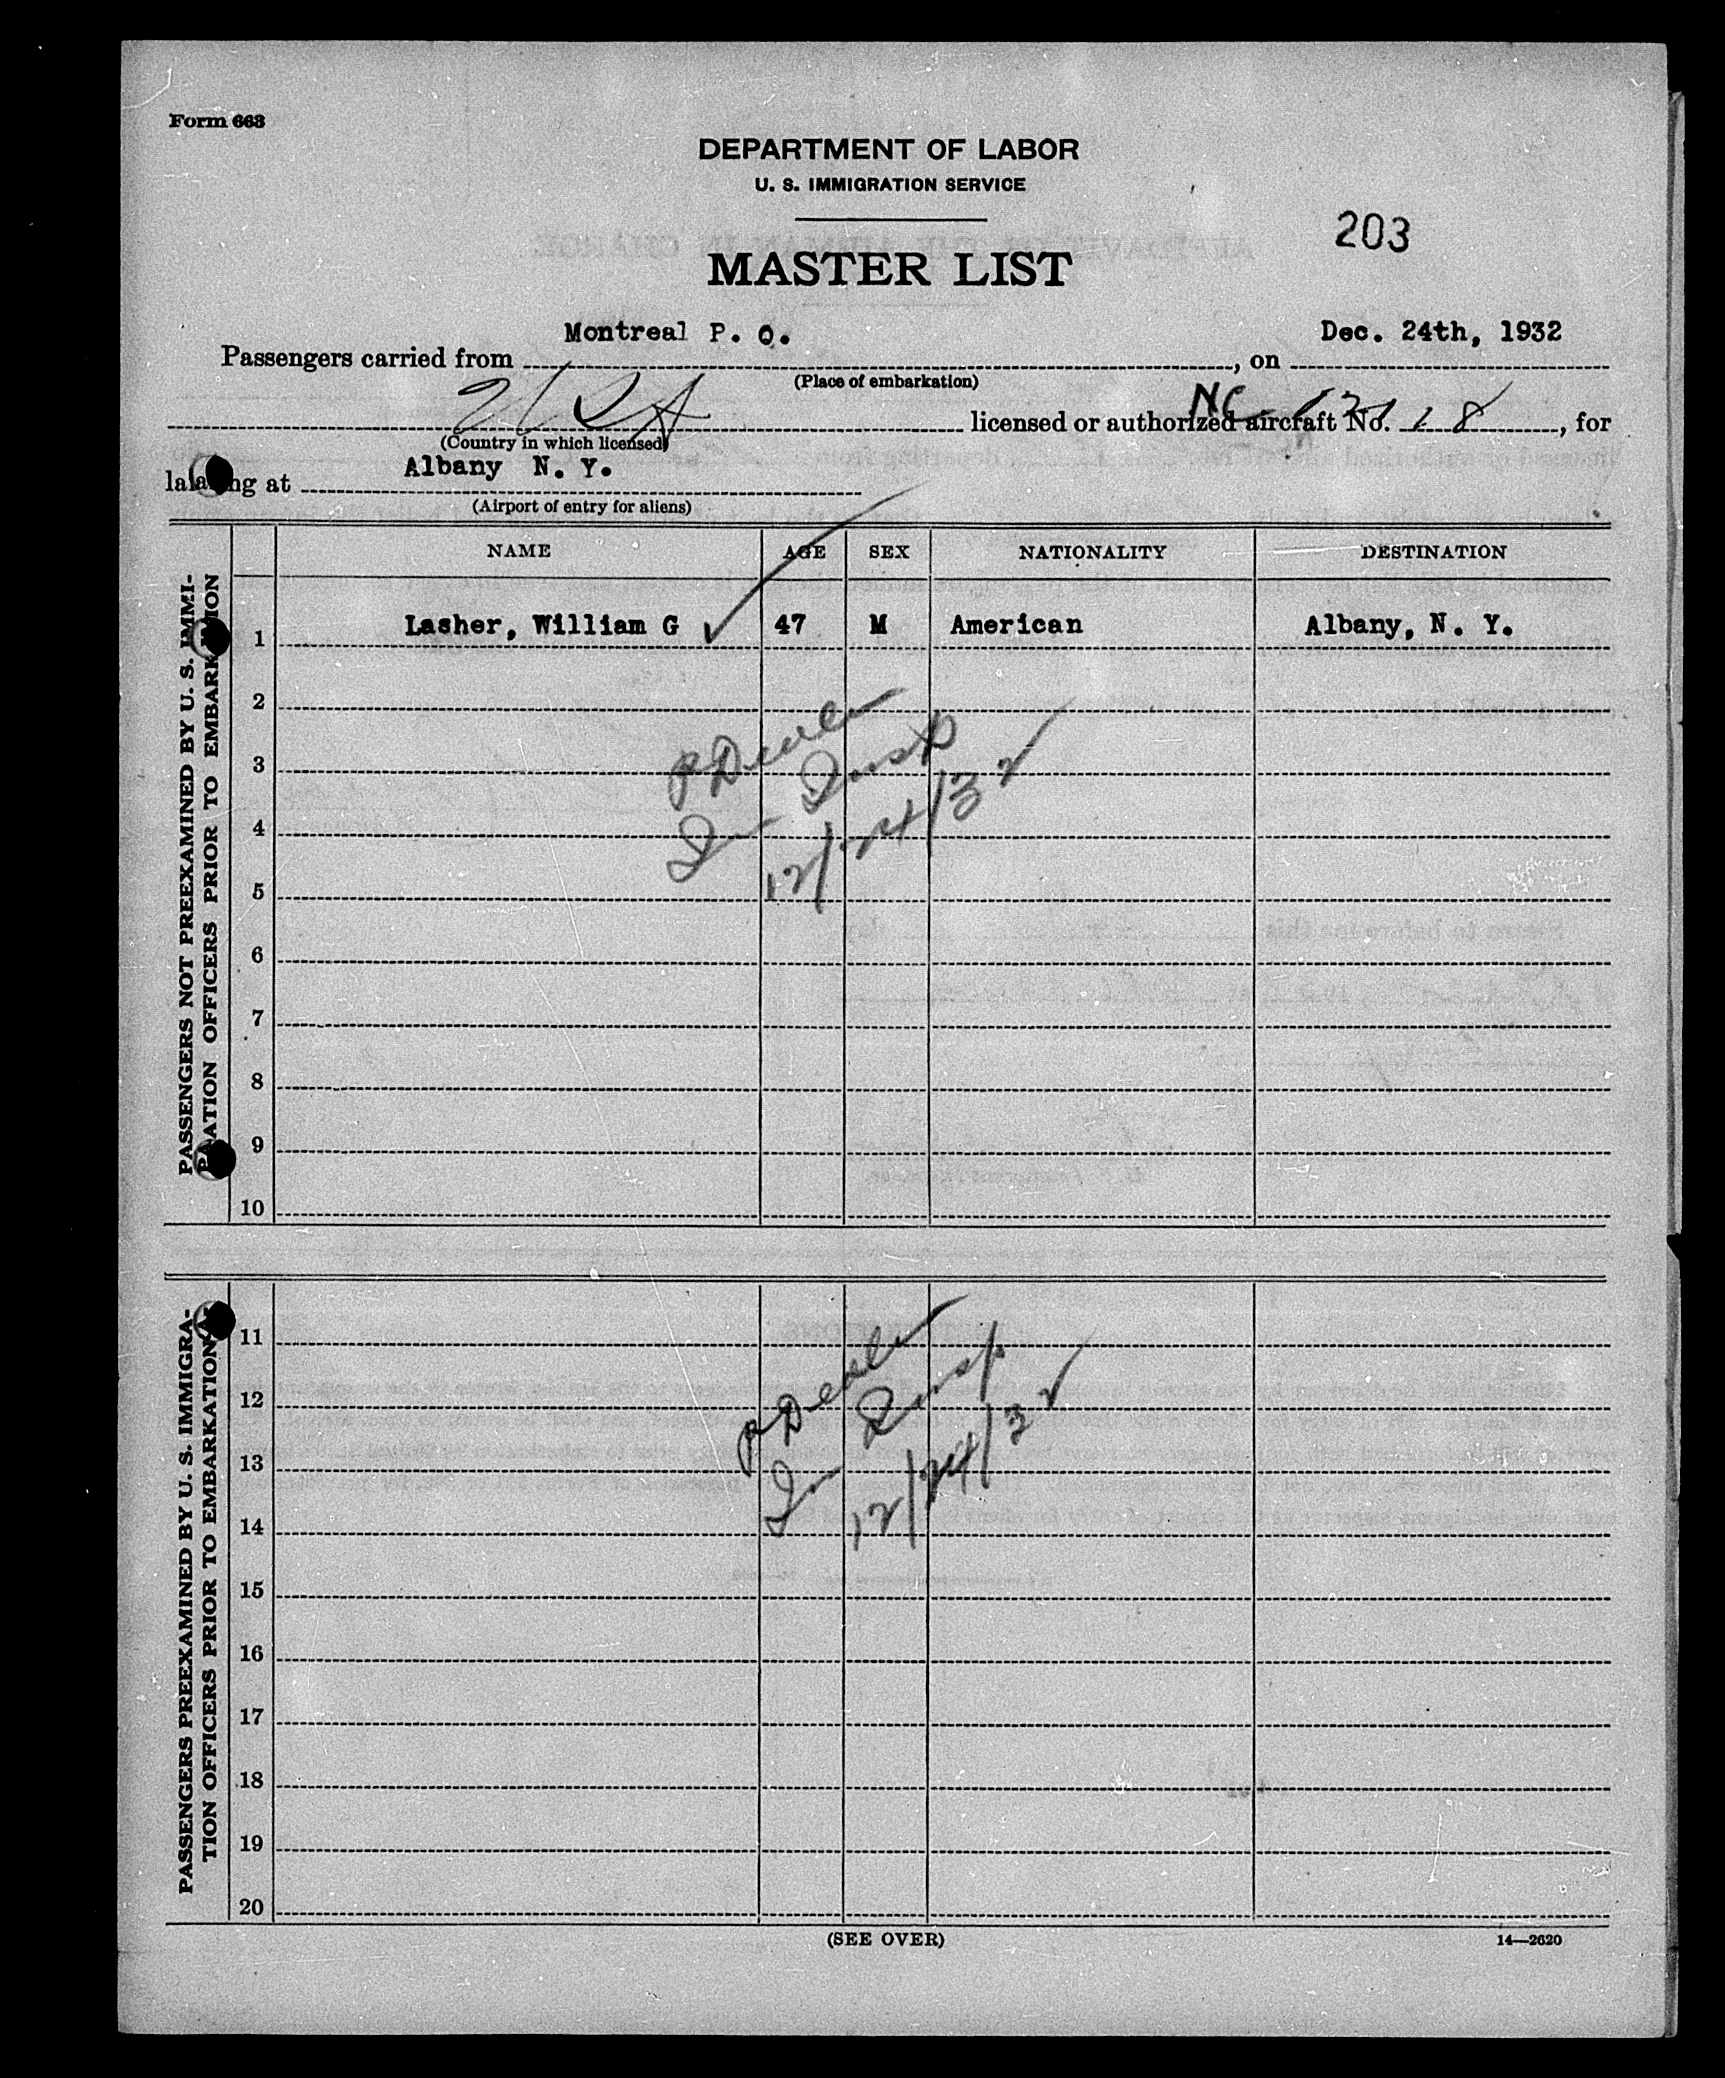 Form 663
DEPARTMENT OF LABOR
U. S. IMMIGRATION SERVICE
203
MASTER LIST
Passengers carried from Montreal P. Q., on Dec. 24th, 1932
(Place of embarkation)
USA licensed or authorized aircraft No. NC, for
(Country in which licensed)
landing at Albany N. Y.
(Airport of entry for aliens)
NAME AGE SEX NATIONALITY DESTINATION
PASSENGERS NOT PREEXAMINED BY U. S. IMMI-
GRATION OFFICERS PRIOR TO EMBARKATION
1 Lasher, William G 47 M American Albany, N. Y.
2
3
4
5
Im Insp
12/24/32
6
7
8
9
10
PASSENGERS PREEXAMINED BY U. S. IMMIGRA-
TION OFFICERS PRIOR TO EMBARKATION
11
12
13
14
Im Insp
12/24/32
15
16
17
18
19
20
(SEE OVER)
14—2620